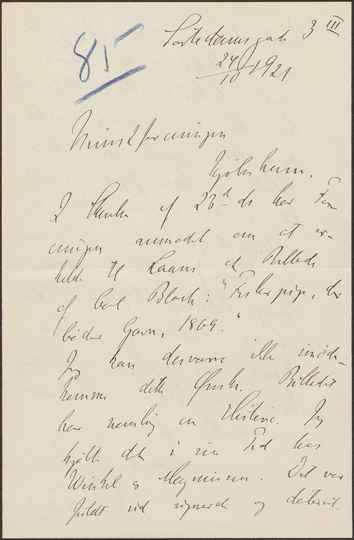 85
Sortedamsgade 3 III
24/10 1921
Kunstforeningen
Kjøbenhavn.
I Skrivelse af 23de ds har For-
eningen anmodet om at er-
holde til Laans et Billede
af Carl Bloch: "Fiskerpige, der
bøder Garn, 1864."
Jeg kan desværre ikke imøde-
komme dette Ønske. Billedet
har nemlig en Historie. Jeg
kjøbte det i sin Tid hos
Winkel & Magnussen. Det var
fuldt ud signeret og dateret.